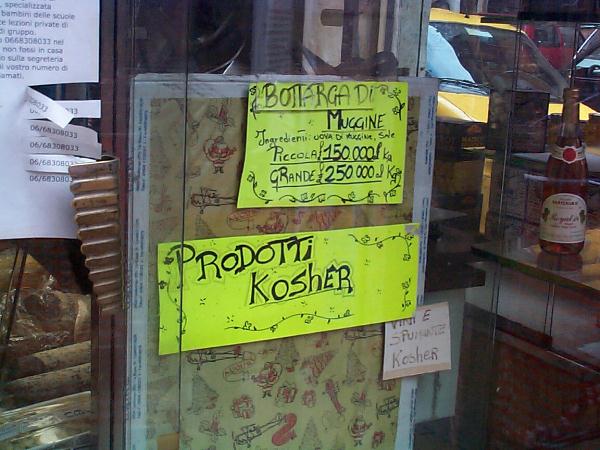 specializzata
bambini delle scuole
lezioni private di
di gruppo.
0668308033 nel
non fossi in casa
sulla segreteria
vostro numero di
06/68308033
06/68308033
06/68308033
BOTTARGA DI
MUGGINE
Ingredienti: UOVA DI MUGGINE, Sale
PICCOLA £ 150.000 al Kg
GRANDE £ 250.000 al Kg
PRODOTTI
KOSHER
VINI E
SPUMANTE
Kosher